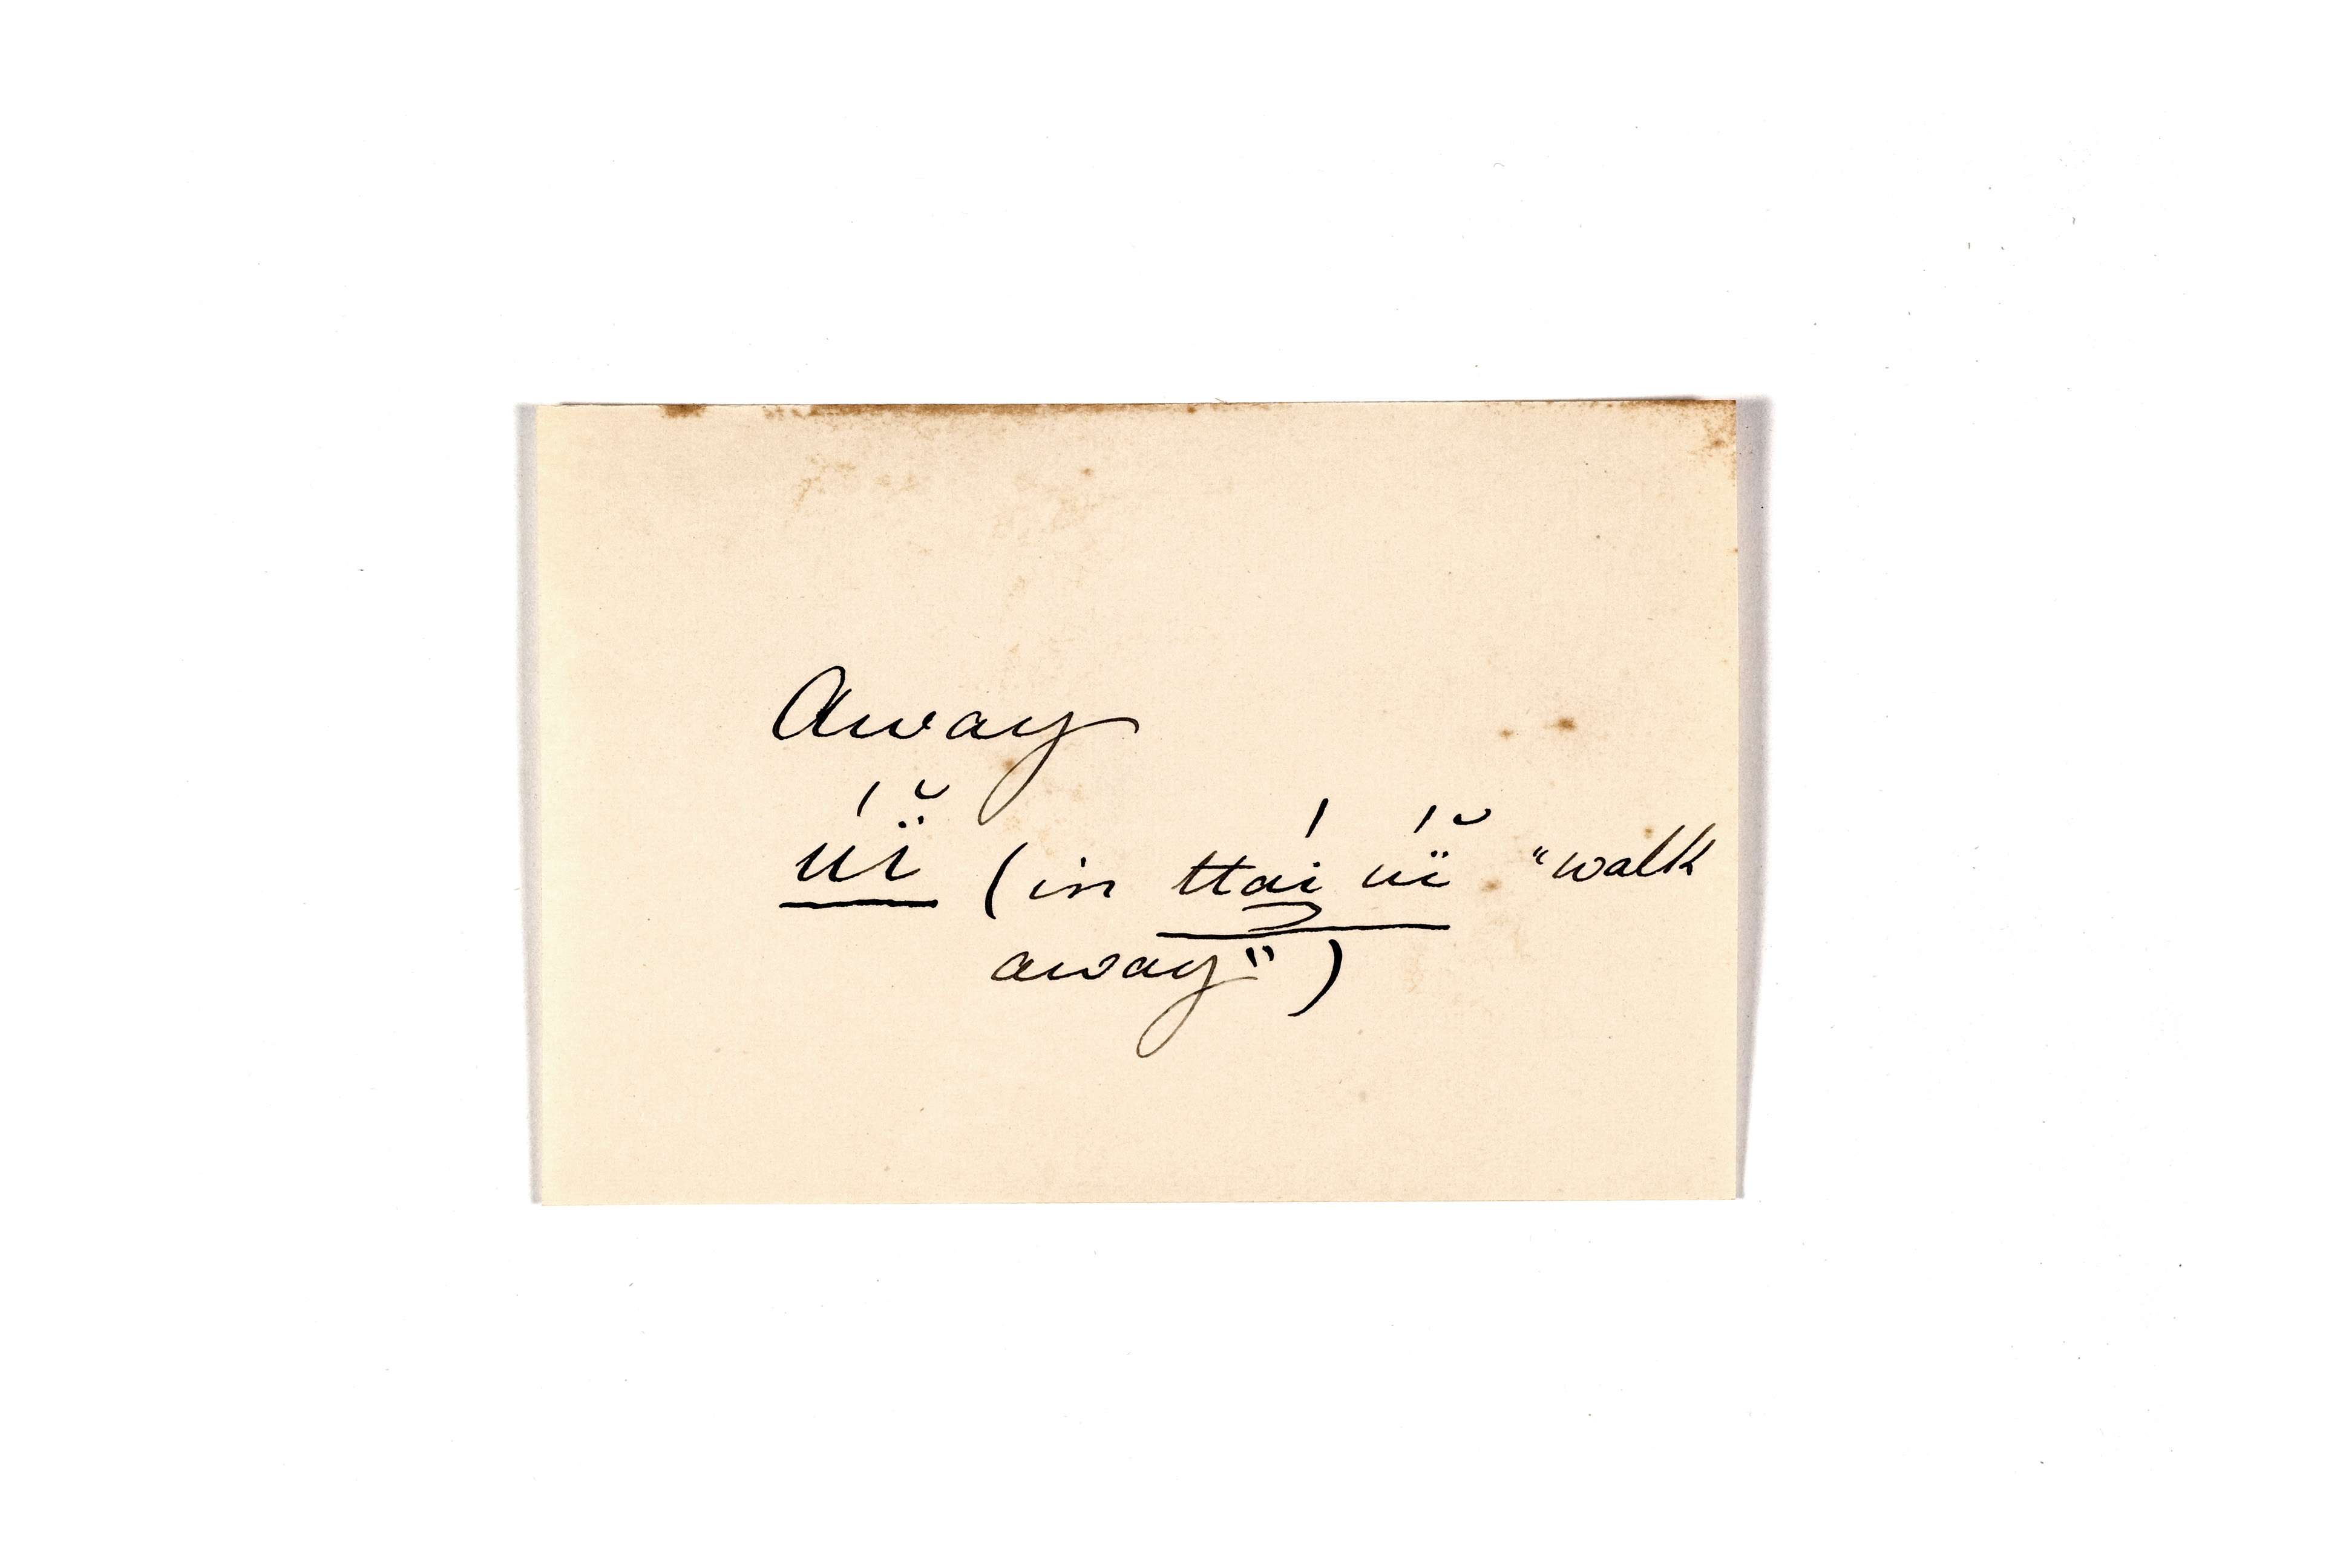 Away
úï̆ (in ttaí̭ úï̆ "walk
away")